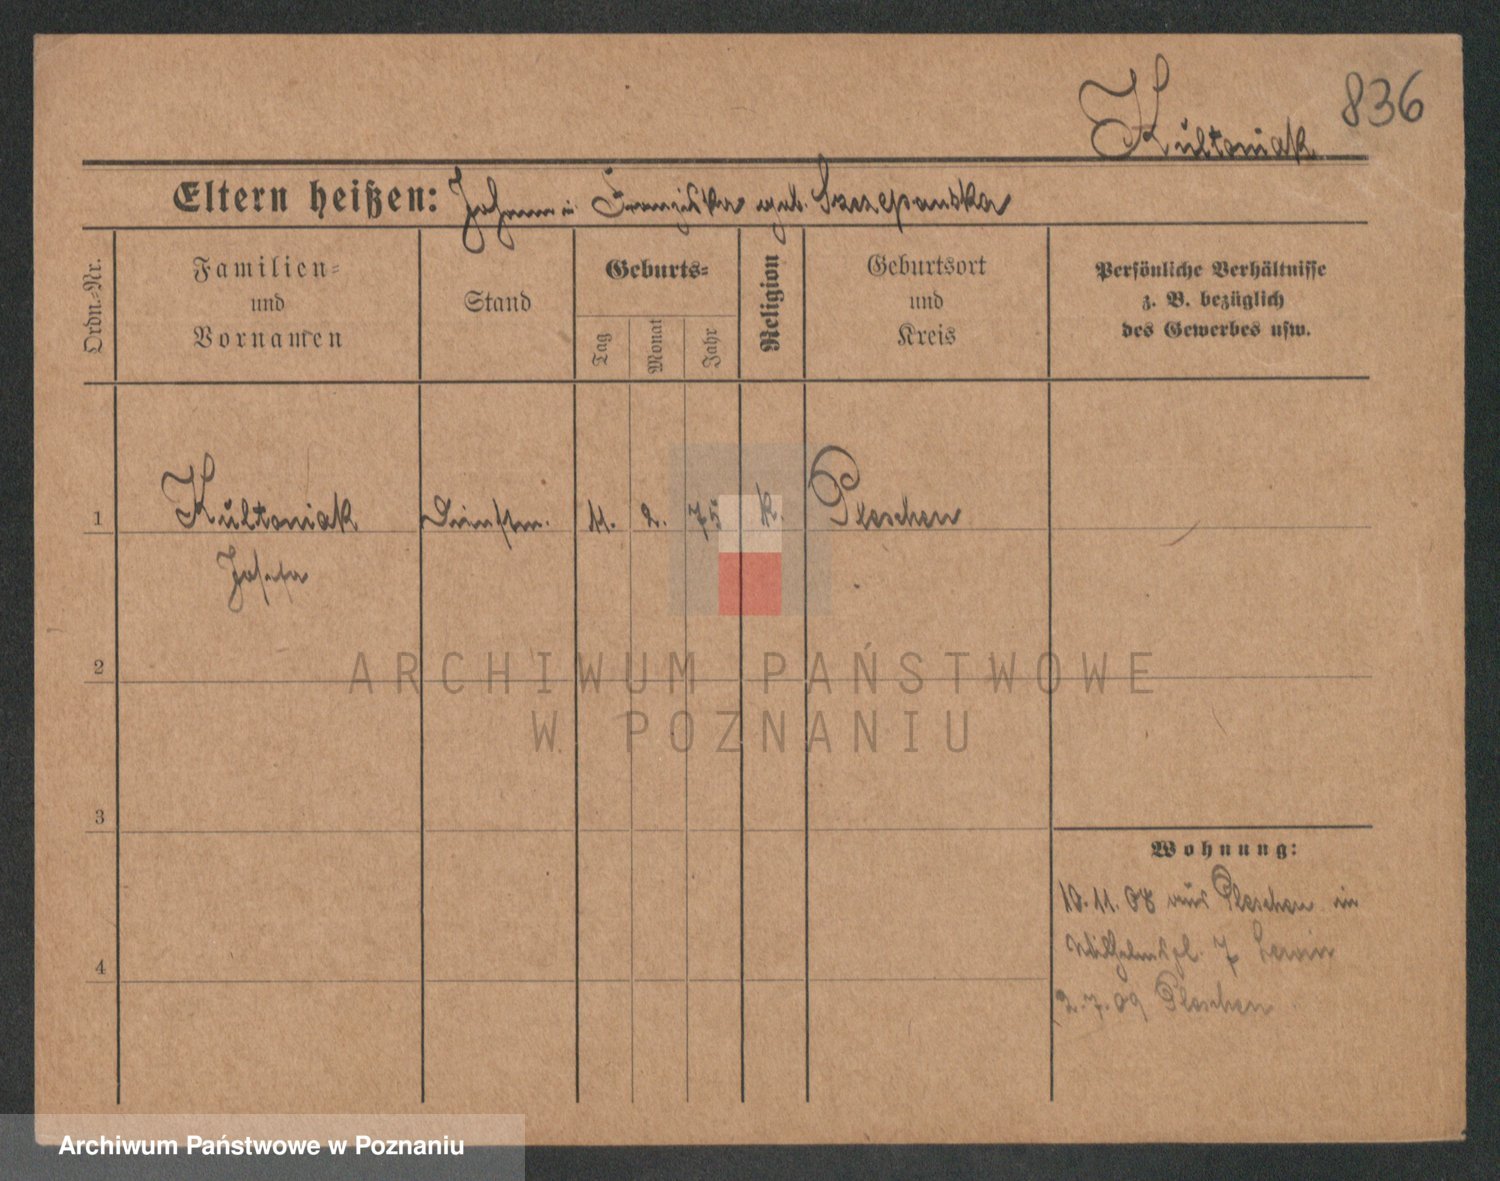 836
Kubtoniak
Eltern heißen: Johann u. Franziska geb. Szczepanska
Ordn.-Nr.
Familien-
und
Vornamen
Stand
Geburts-
Tag
Monat
Jahr
Religion
Geburtsort
und
Kreis
Persönliche Verhältnisse
z. B. bezüglich
des Gewerbes usw.
1 Kubtoniak Dienstm. 11. 2. 75 k. Pleschen
Josefa
2
3
4
Wohnung:
10.11.08 aus Pleschen in
Wilhelmspl. 7 Lewin
2.7.09 Pleschen
ARCHIWUM PAŃSTWOWE
W POZNANIU
Archiwum Państwowe w Poznaniu